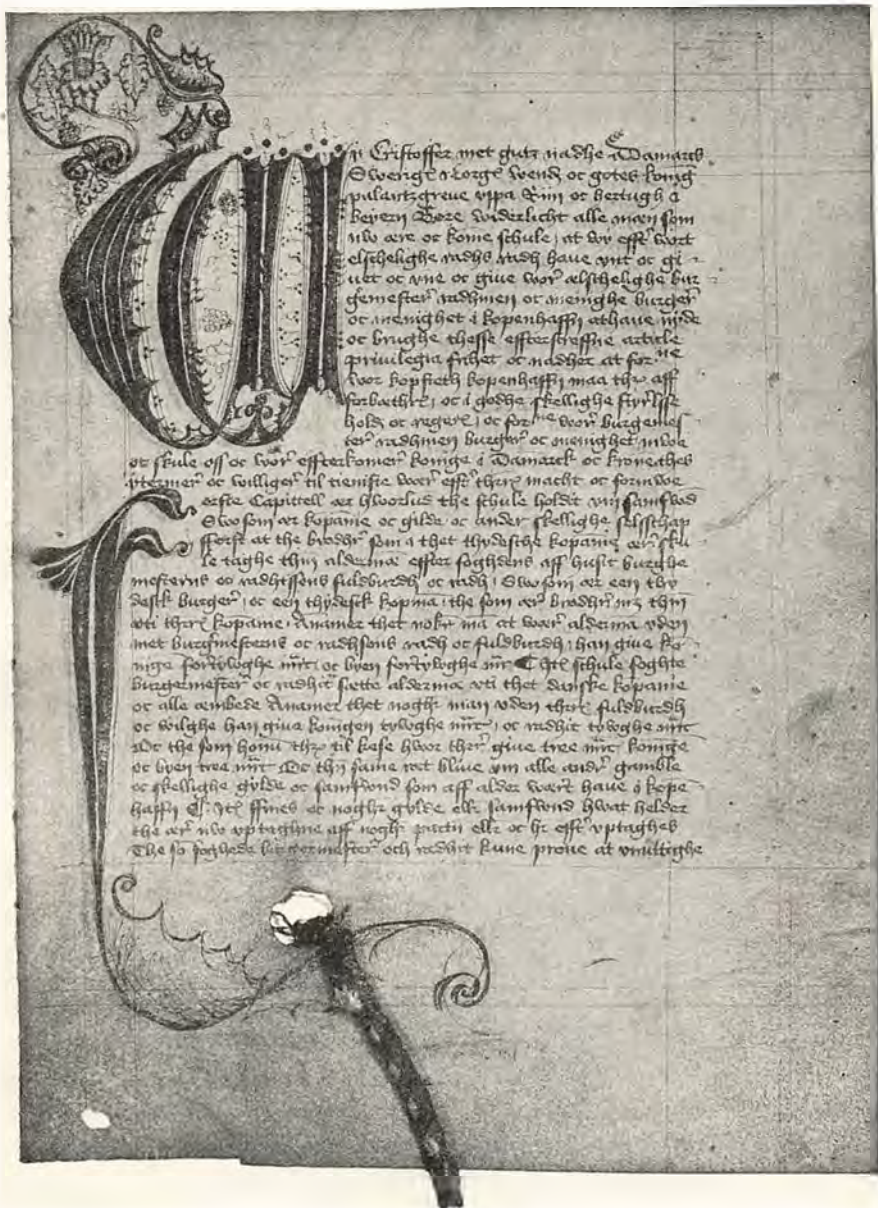 Wij Cristoffer met gutz nadhe Danmarcks
Swerigs Norgs wends oc gotes konig
palantzgreve uppa Rin oc hertugh i
beyern Gøre widerlicht alle man som
nw ære oc kome schule, at wy effter wort
elschelighe radhs radh have unt oc gi
vet oc une oc give wor elschelighe bur
gemester radhmen oc menighe burger
oc menighet i kopenhaffn athave nyde
oc brughe thesse effterscreffne article
privilegia frihet oc nadher at forne
wor kopsteth kopenhaffn maa ther aff
forbæthres, oc i godhe skellighe styrlsse
holdes oc regeres, oc forne wor burgemes
ter radhmen burger oc menighet mwe
oc skule oss oc wor effterkomer konige i Danmarck oc krone thes
ytermer oc williger til tieniste være effter there macht oc formwe
erste Capittell ær hworlund the schule holdit um samfwnd
Swo som ær kopanie oc gilde oc ander skellighe selschap
fforst at the brødher som i thet thydesche kopanie ær sku
le taghe thin alderman effter soghdens aff husit burghe
mesterns oc radhtssens fuldburdh oc radh, Swo som ær een thy
desck burger, oc een thydesck kopman, the som ær brødher mz thm
uti there kopanie, Anamer thet noker man at være alderman uden
met burgmesterns oc radhsens radh oc fuldburdh, han give ko
nige fortywghe mrc oc byen fortywghe mrc Item schule soghte
burgermester oc radhit sætte alderman uti thet danske kopanie
oc alle æmbede Anamer thet noghr man uden there fuldburdh
oc wilghe han give konigen tywghe mrc, oc radhit tywghe mrc
Oc the som honum ther til kese hwor ther give tree mrc konige
oc byen tree mrc Oc thn same ret blive um alle andr gamble
oc skellighe gylde oc samfwnd som aff alder wært have i kope
haffn Item ffines oc noghr gylde eller samfwnd hwat helder
the ær nw uptaghne aff noghr partii eller oc her effter uptaghes
The so soghede burgermester och radhit kune prøve at unuttighe